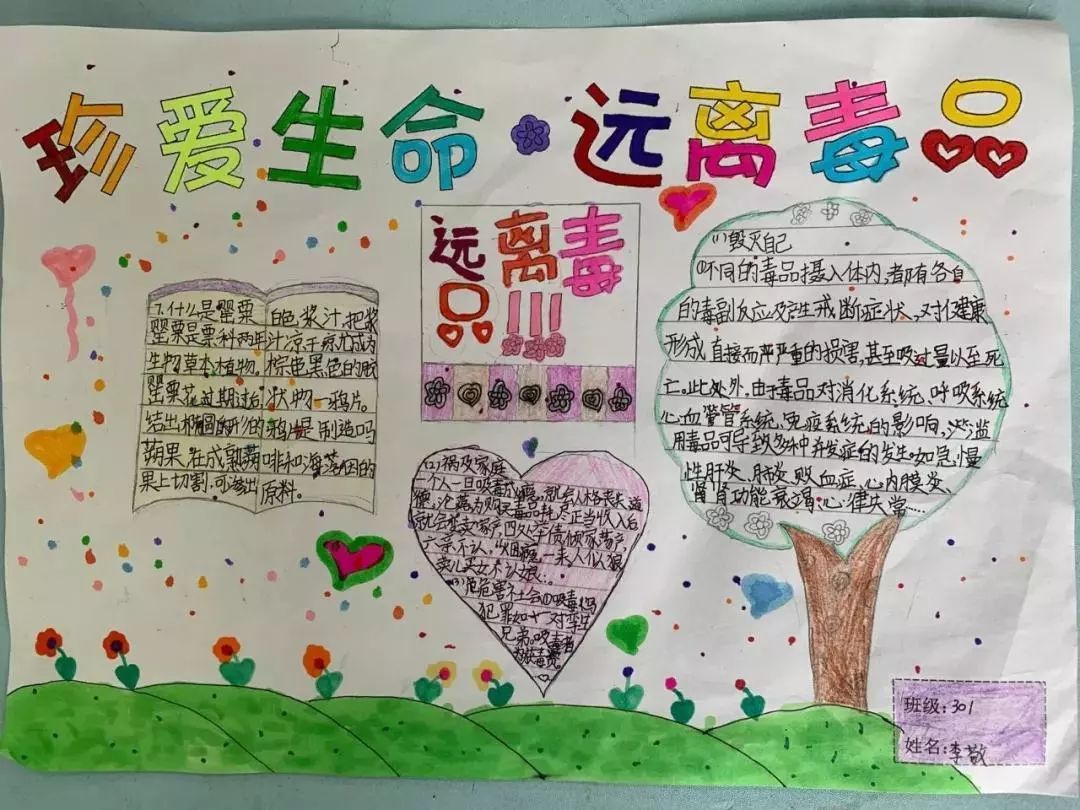 珍爱生命·远离毒品
远离毒
品!!!
7.什么是罂粟
罂粟是栗科两年
生物草本植物。
罂粟花过期过后
结出椭圆形的
蒴果,在成熟蒴
果上切割,可渗出
白色浆汁,把浆
汁凉干后尤成为
棕色黑色的胶
状物—鸦片。
鸦片是制造吗
啡和海洛因的
原料。
(2)祸及家庭
一个人一旦吸毒成瘾,就会人格丧失道
德,沦为购买毒品耗尽正当收入后
就会变卖家产,四处举债倾家荡产,
六亲不认,
卖儿卖女
(3)危害社会①吸毒与
犯罪如一对孪生
兄弟。吸毒者
(1)毁灭自己
①不同的毒品摄入体内,都有各自
的毒副反应及产生戒断症状、对健康
形成直接而严严重的损害,甚至吸过量以至死
亡。此处外,由于毒品对消化系统、呼吸系统
心血管管系统、免疫系统的影响,滥
用毒品可导致多种并发症的发生。如急慢
性肝炎、肺炎、败血症、心内膜炎、
肾功能衰竭、心律失常……
班级:301
姓名:李敬